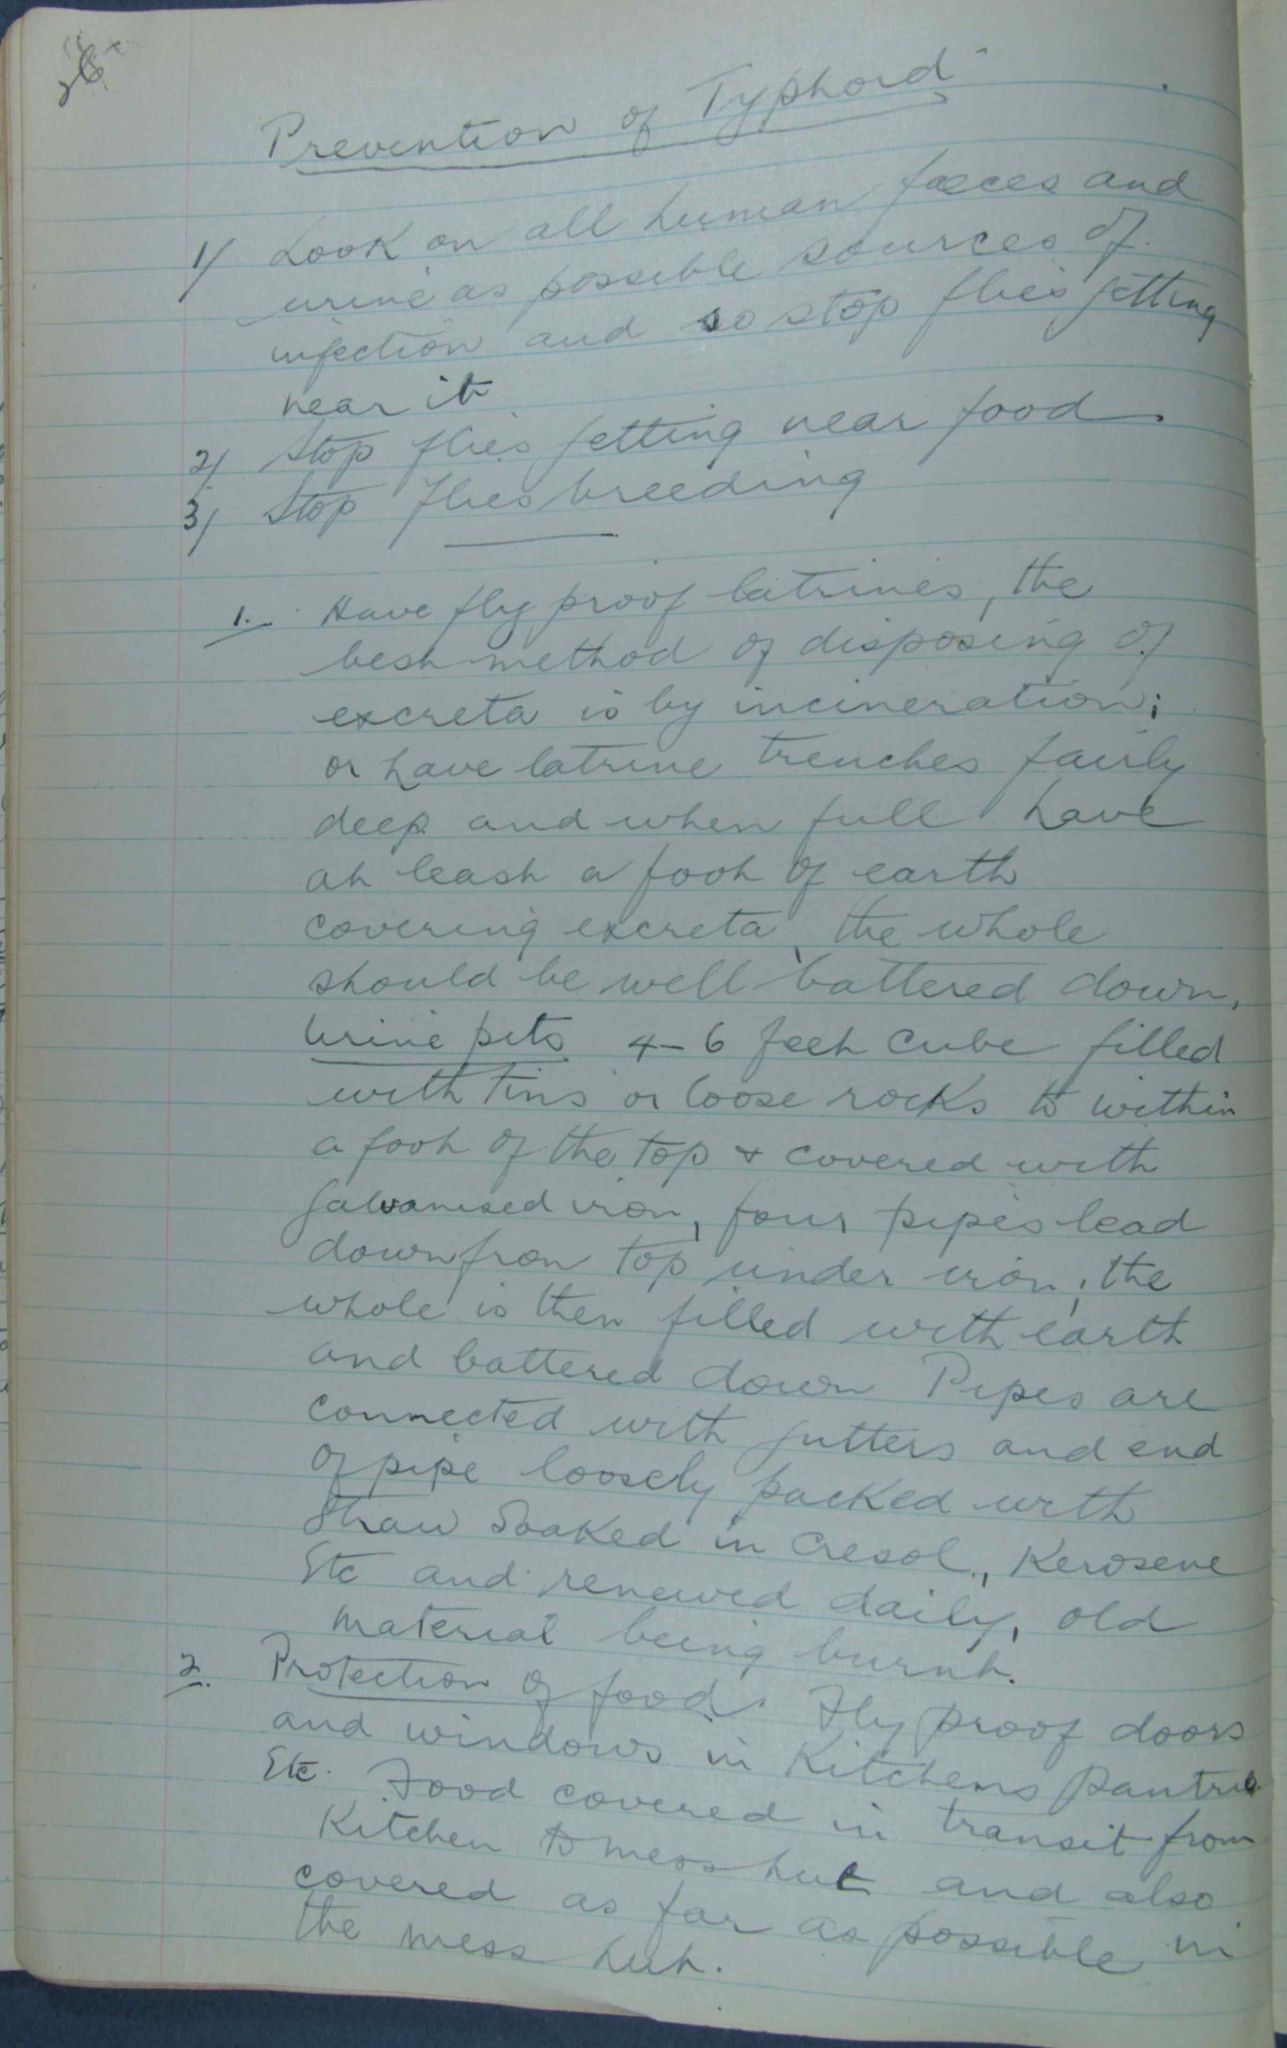 26
Prevention of Typhoid
1/ Look on all human faeces and
urine as possible sources of
infection and so stop flies getting
near it
2/ Stop flies getting near food.
3/ Stop flies breeding
1. Have fly proof latrines, the
best method of disposing of
excreta is by incineration;
or have latrine trenches fairly
deep and when full have
at least a foot of earth
covering excreta, the whole
should be well battered down.
Urine pits 4-6 feet cube filled
with tins or loose rocks to within
a foot of the top & covered with
galvanised iron, four pipes lead
down from top under iron, the
whole is then filled with earth
and battered down Pipes are
connected with gutters and end
of pipe loosely packed with
straw soaked in Cresol, Kerosene
Etc and renewed daily, old
material being burnt.
2. Protection of food. Fly proof doors
and windows in Kitchens pantries
Etc. Food covered in transit from
Kitchen to mess hut and also
covered as far as possible in
the mess hut.